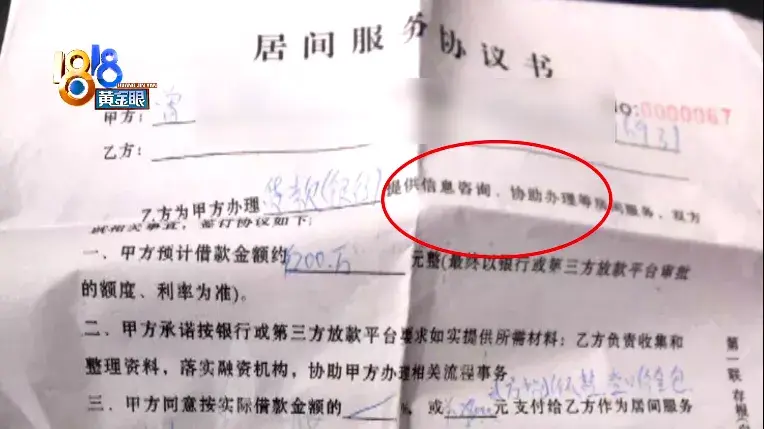 1818
黄金眼
居间服务协议书
NO:0000067
甲方:
乙方:
乙方为甲方办理贷款(银行)提供信息咨询、协助办理等居间服务,双方
签订协议如下:
一、甲方预计借款金额约200万元整(最终以银行或第三方放款平台审批
的额度、利率为准)。
二、甲方承诺按银行或第三方放款平台要求如实提供所需材料;乙方负责收集和
整理资料,落实融资机构,协助甲方办理相关流程事务。
三、甲方同意按实际借款金额的 %,或 元支付给乙方作为居间服务
第一联 存根